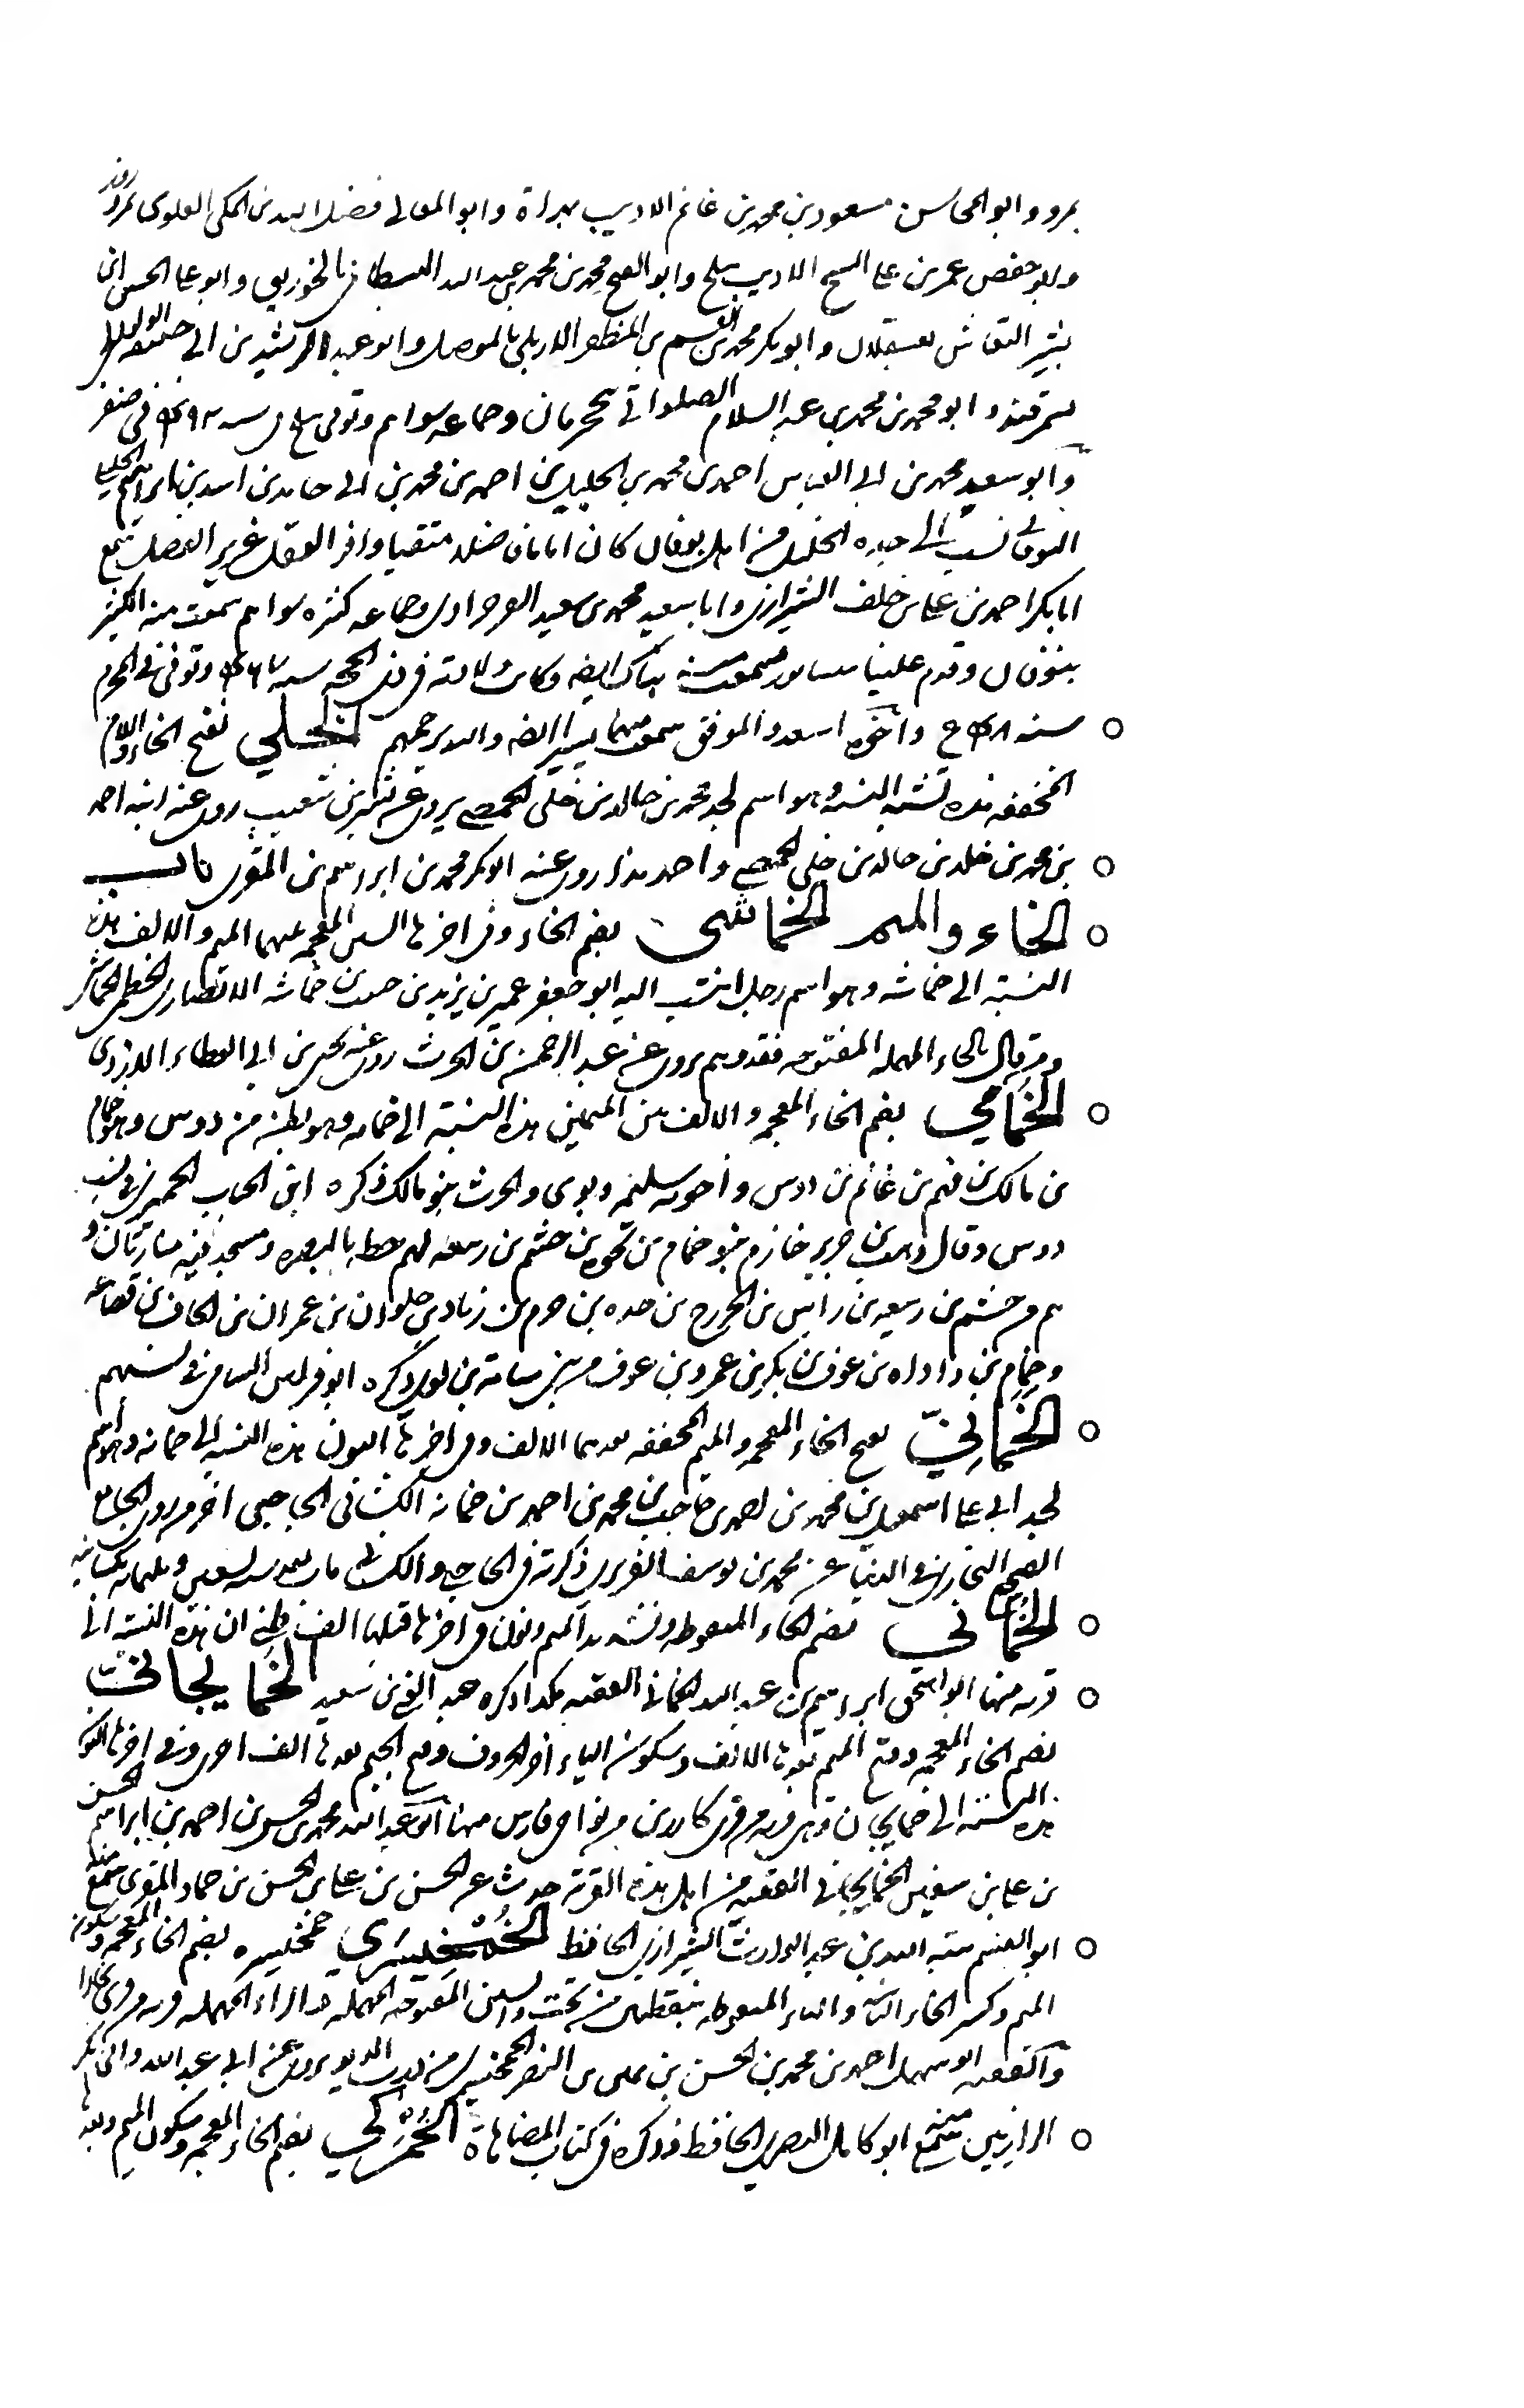 بمرو وابو المحاسن مسعود بن محمد بن غانم الاديب بهراة وابو المعالي فضل الله بن المكي العلوي بمرو روذ
وابو حفص عمر بن علي الشيخ الاديب ببلخ وابو الفتح محمد بن محمد بن عبد الله البسطامي وابو علي الحسن بن
بشير النقاش وابو بكر محمد بن القسم بن المظفر الاربلي بالموصل وابو عبد الرشيد بن ابي حنيفة الولوالجي
بسمرقند وابو محمد بن محمد بن عبد السلام وجماعة سواهم وتوفي ببلخ في سنه في صفر
وابو سعيد محمد بن ابي العباس احمد بن محمد بن الخليل بن احمد بن محمد بن ابي حامد بن اسد بن ابراهيم الخليلي
النوقاني نسب الى جده الخليل من اهل نوقان كان اماما فاضلا متقيا وافر العقل غزير الفضل سمع
ابا بكر احمد بن علي بن خلف الشيرازي وابا سعيد محمد بن سعيد الفرخرادي وجماعه كثيره سواهم سمعت منه الكثير
بنوقان وقدم علينا نيسابور فسمعت منه هناك ايضا وكانت ولادته في ذي الحجه سنه وتوفي في المحرم
سنه واخوه اسعد والموفق سمعت منهما يسيرا ايضا والله يرحمهم الخلي بفتح الخاء واللام
المخففه هذه تشبه النسبه وهو اسم لجد محمد بن خالد بن خلي الحمصي يروي عن بشر بن شعيب روى عنه ابنه احمد
بن محمد بن خالد بن خلي الحمصي واحمد هذا روى عنه ابو بكر محمد بن ابراهيم بن المقري باب
الخاء والميم الخماشي بضم الخاء وفي اخرها الشين المعجمه بينهما الميم والالف هذه
النسبة الى خماشه وهو اسم رجل انتسب اليه ابو جعفر عمير بن يزيد بن حبيب بن خماشه الانصاري الخطمي الخماشي
ومن قال بالحاء المهمله المفتوحه فقد وهم يروي عن عبد الرحمن بن الحرث روى عنه يحيى بن ابي العطاء الازدي
الخمامي بضم الخاء المعجمه والالف بين الميمين هذه النسبة الى خمامه وهو بطن من دوس وهو خمام
بن مالك بن فهم بن غانم بن دوس واخوته سليمه وهوى والحرث بنو مالك ذكره ابن الحباب الحميري في نسب
دوس وقال وهب بن جرير بن حازم بنو خمام من نحوه بن خشم بن ربيعه لهم خطه بالبصره ومسجد فيه منارتان و
هم من خشم بن ربيعه بن راسب بن الخزرج بن حده بن جرم بن زبان بن حلوان بن عمران بن الحاف بن قضاعه
وخمام بن داداه بن عوف بن بكر بن عمرو بن عوف من بني سامة بن لؤي ذكره ابو فراس السامي في نسبهم
الخماني بفتح الخاء المعجمه والميم المخففه بعدهما الالف وفي اخرها النون هذه النسبه الى خمانه وهو اسم
لجد ابي علي اسمعيل بن محمد بن احمد بن حاجب بن محمد بن احمد بن خمانه الكشاني الحاجبي اخر من روى الجامع
الصحيح للبخاري في الدنيا عن محمد بن يوسف الفربري ذكرته في الحاجبي والكشاني مات بعد سنه تسعين وثلثمائه بكشانيه
الخماني بضم الخاء المنقوطه وتشديد الميم ونون في اخرها قبلها الف ظني ان هذه النسبة الى
قريه منها ابو اسحق ابراهيم بن عبد الله الخماني الفقيه هكذا ذكره عبد الغني بن سعيد الخمايجاني
بضم الخاء المعجمه وفتح الميم بعدها الالف وسكون الياء اخر الحروف وفتح الجيم بعدها الف اخرى وفي اخرها النون
هذه النسبة الى خمايجان وهي قريه من قرى كازرين من نواحي فارس منها ابو عبد الله محمد بن الحسن بن احمد بن ابراهيم بن الحسن
بن علي بن سفيان الخمايجاني الفقيه من اهل هذه القرية حدث عن الحسن بن علي بن الحسن بن حماد المقري سمع منه
ابو القسم هبة الله بن عبد الوارث الشيرازي الحافظ الخمخيسري خمخيسره بضم الخاء المعجمه وسكون
الميم وكسر الخاء الثانيه والياء المنقوطه بنقطتين من تحت والسين المفتوحه المهمله بعدها الراء المهمله قريه من قرى بخارا
والفقيه ابو سهل احمد بن محمد بن الحسن بن علي بن النضر الخمخيسري من يروي عن ابي عبد الله وابي بكر
الرازيين سمع منه ابو كامل البصري الحافظ وذكره في كتاب المضاهاة الخمركي بضم الخاء المعجمه وسكون الميم وبعدها